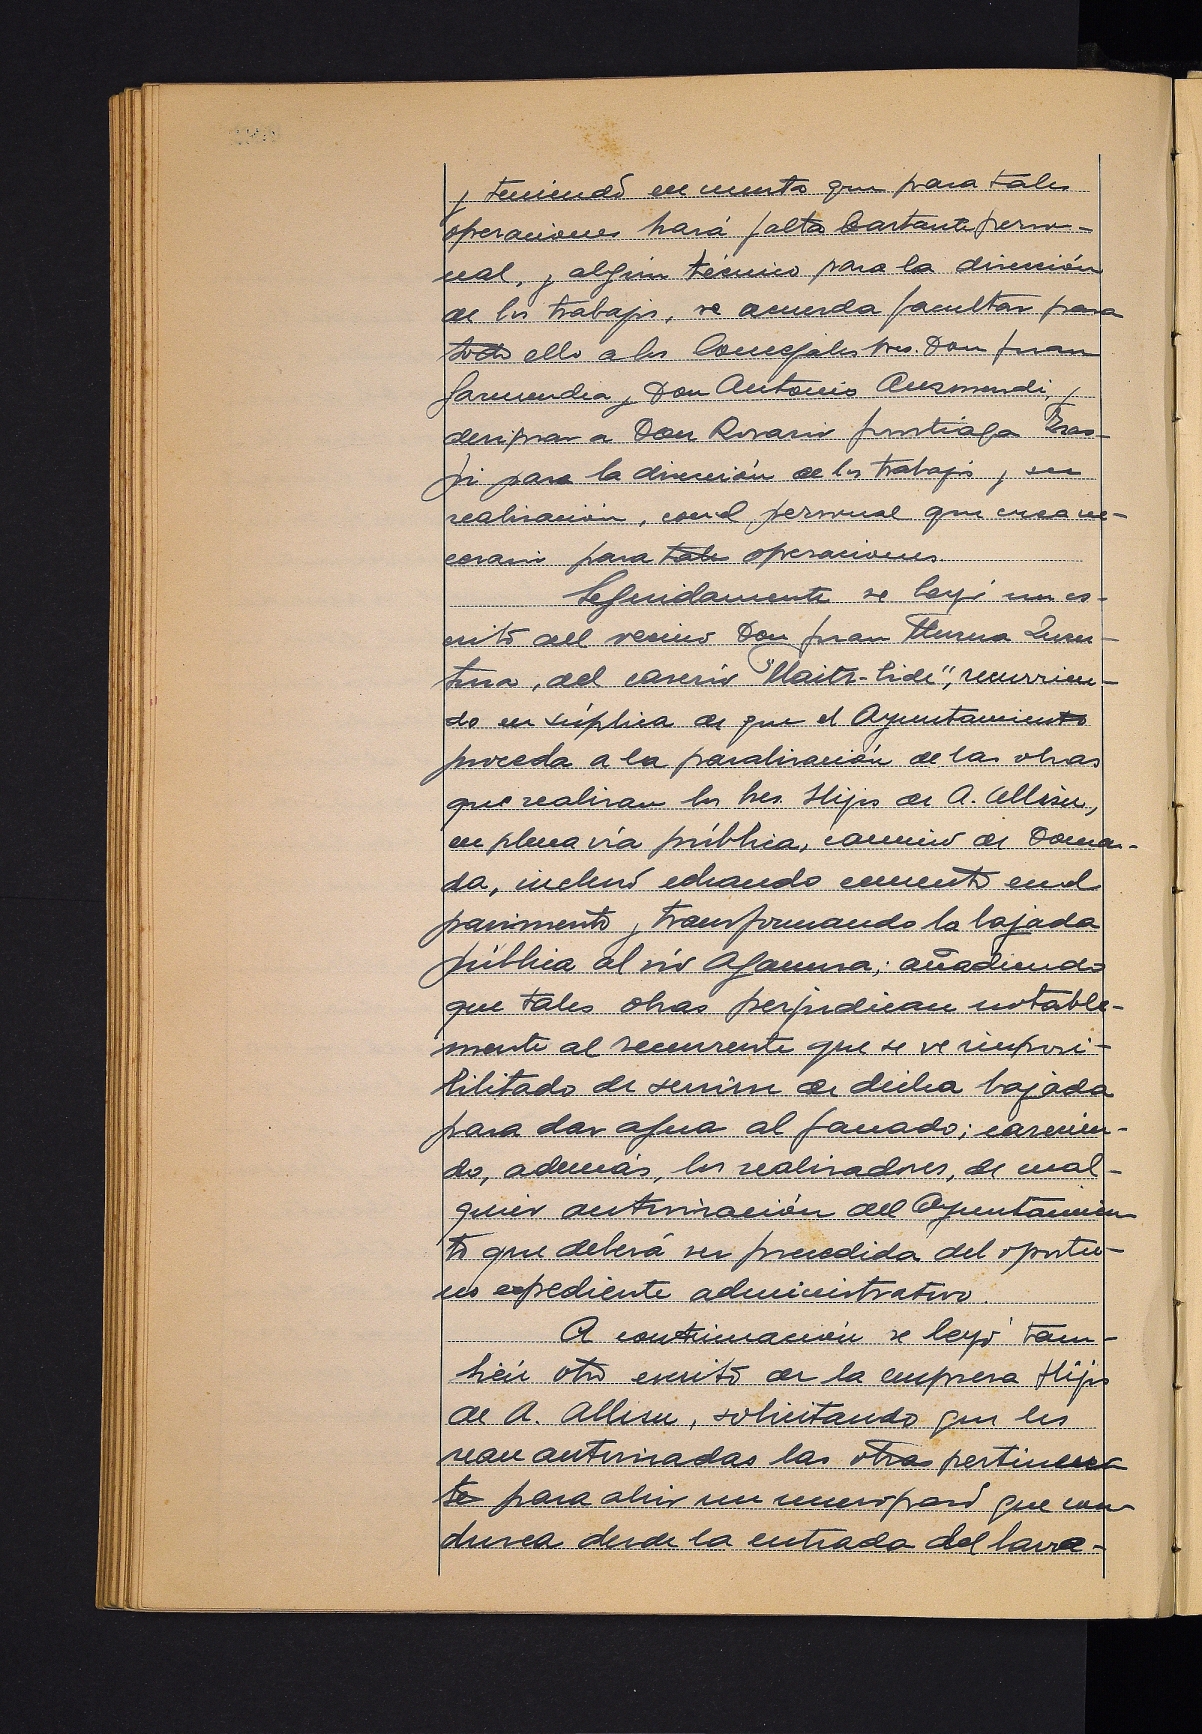 y teniendo en cuenta que para tales
operaciones hará falta bastante perso-
nal, y algún técnico para la dirección
de los trabajos, se acuerda facultar para
todo ello a los Concejales Sres. Don Juan
Garmendia y Don Antonio Auzmendi, y
designar a Don Rosario Juristiaga
para la dirección de los trabajos y su
realización, con el personal que crea ne-
cesario para tales operaciones.
Seguidamente se leyó un es-
crito del vecino Don Juan
del caserío "Maitz-Bide", recurrien-
do en súplica de que el Ayuntamiento
proceda a la paralización de las obras
que realizan los Sres. Hijos de A. Elósegui,
en plena vía pública, camino de
incluso echando cemento en el
pavimento y transformando la bajada
pública al río Agaunza; añadiendo
que tales obras perjudican notable-
mente al recurrente que se ve imposi-
bilitado de servirse de dicha bajada
para dar agua al ganado; carecien-
do, además, los realizadores, de cual-
quier autorización del Ayuntamien-
to que deberá ser precedida del oportu-
no expediente administrativo.
A continuación se leyó tam-
bién otro escrito de la empresa Hijos
de A. solicitando que les
sean autorizadas las obras pertinen-
tes para abrir un nuevo paso que con-
duzca desde la entrada del lava-